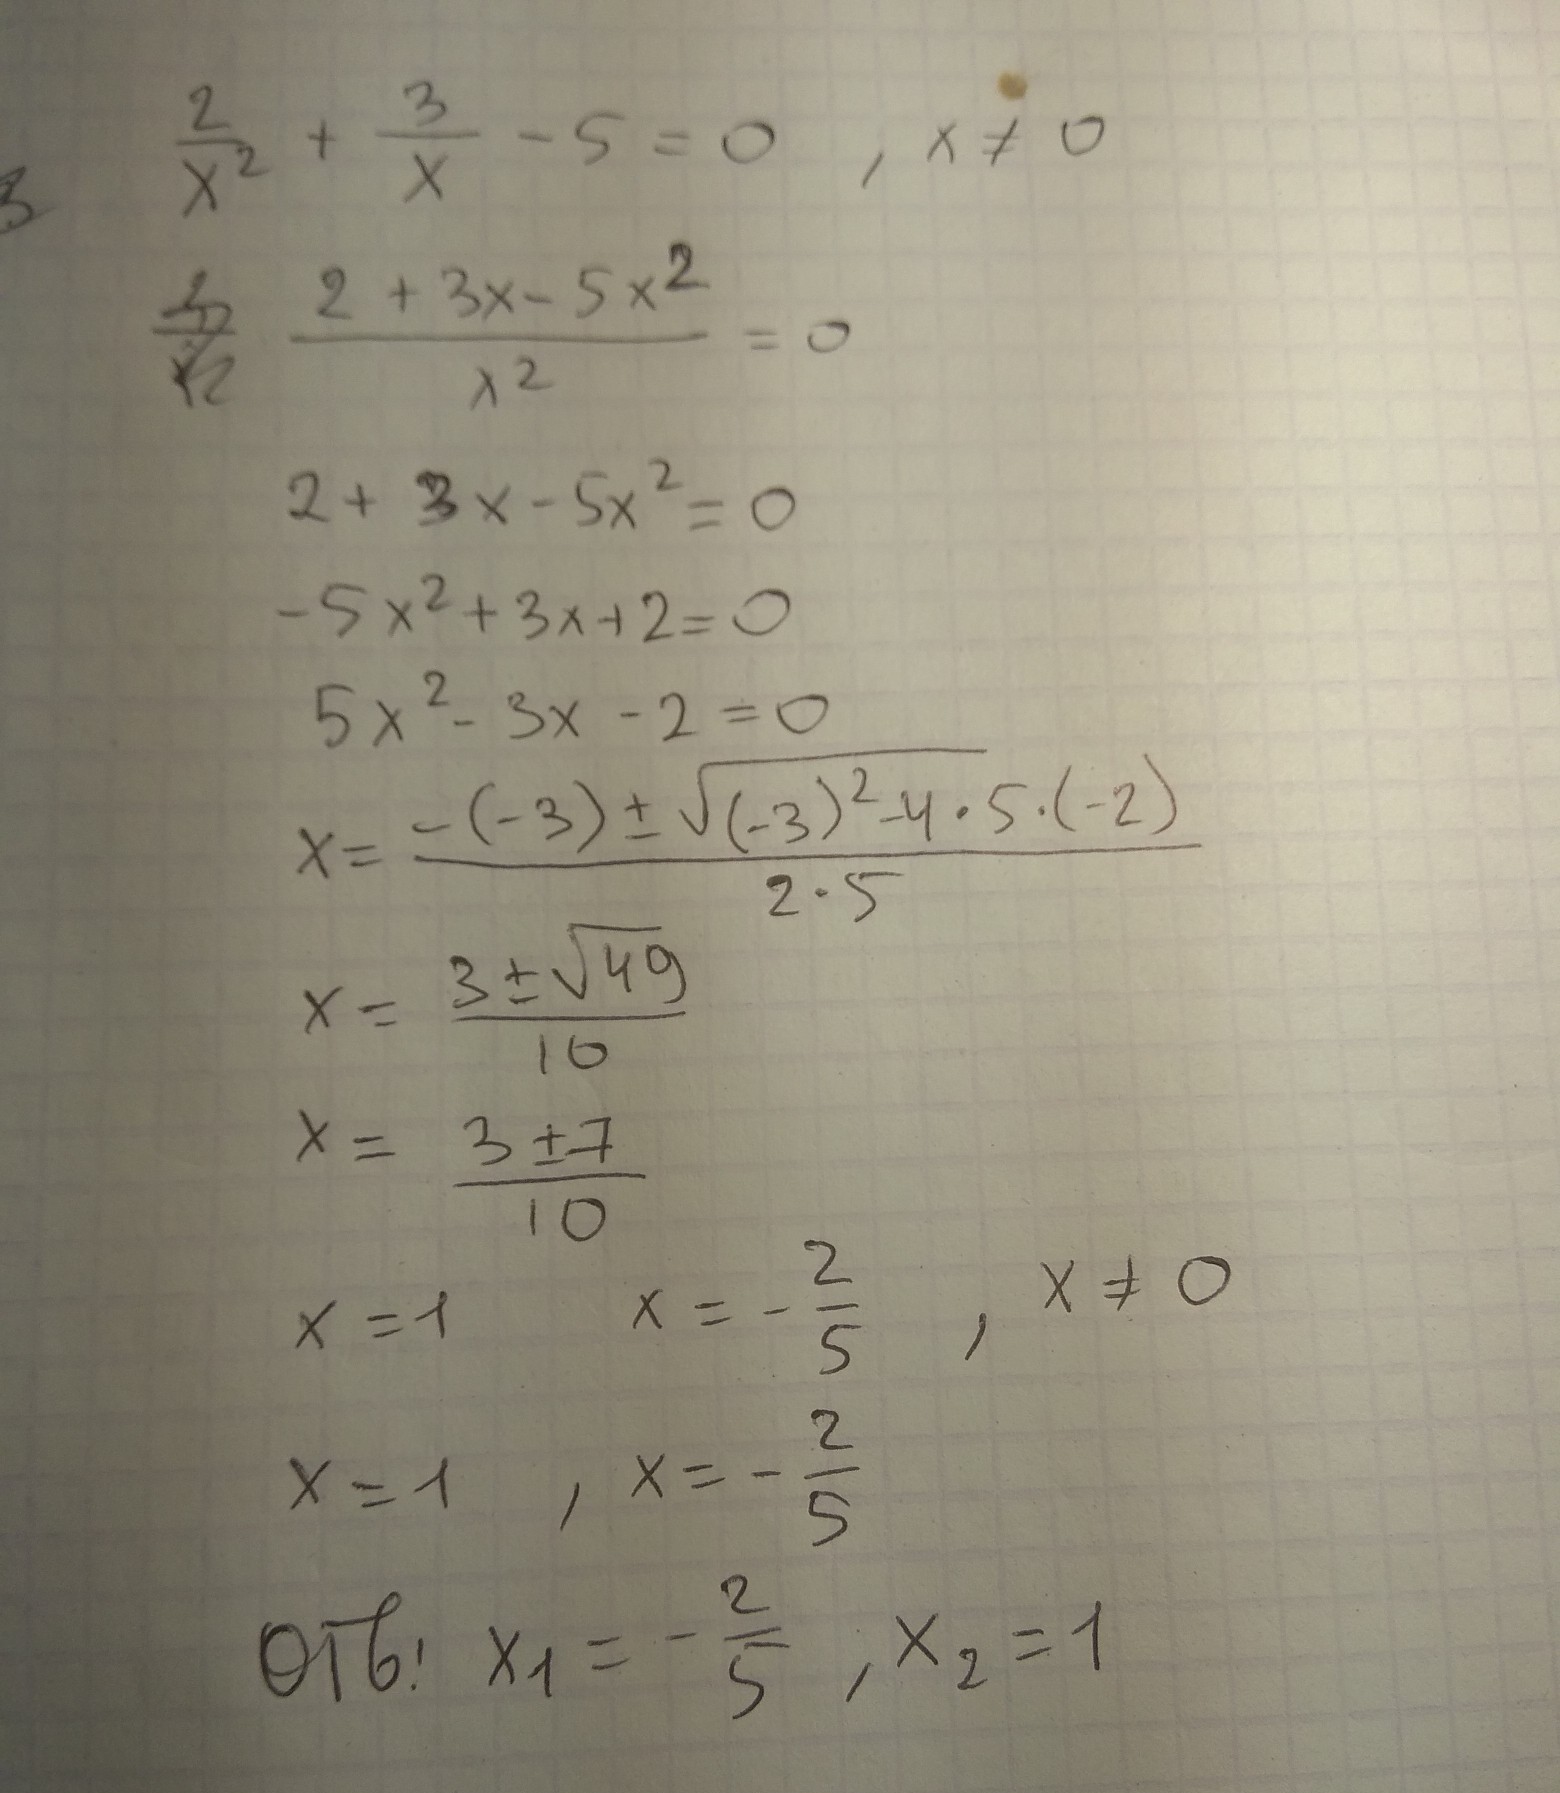 2/x² + 3/x - 5 = 0 , x ≠ 0
3
(2 + 3x - 5x²)/x² = 0
2 + 3x - 5x² = 0
-5x² + 3x + 2 = 0
5x² - 3x - 2 = 0
x = (-(-3) ± √((-3)² - 4 · 5 · (-2)))/(2 · 5)
x = (3 ± √49)/10
x = (3 ± 7)/10
x = 1 x = -2/5 , x ≠ 0
x = 1 , x = -2/5
Отв: x₁ = -2/5 , x₂ = 1